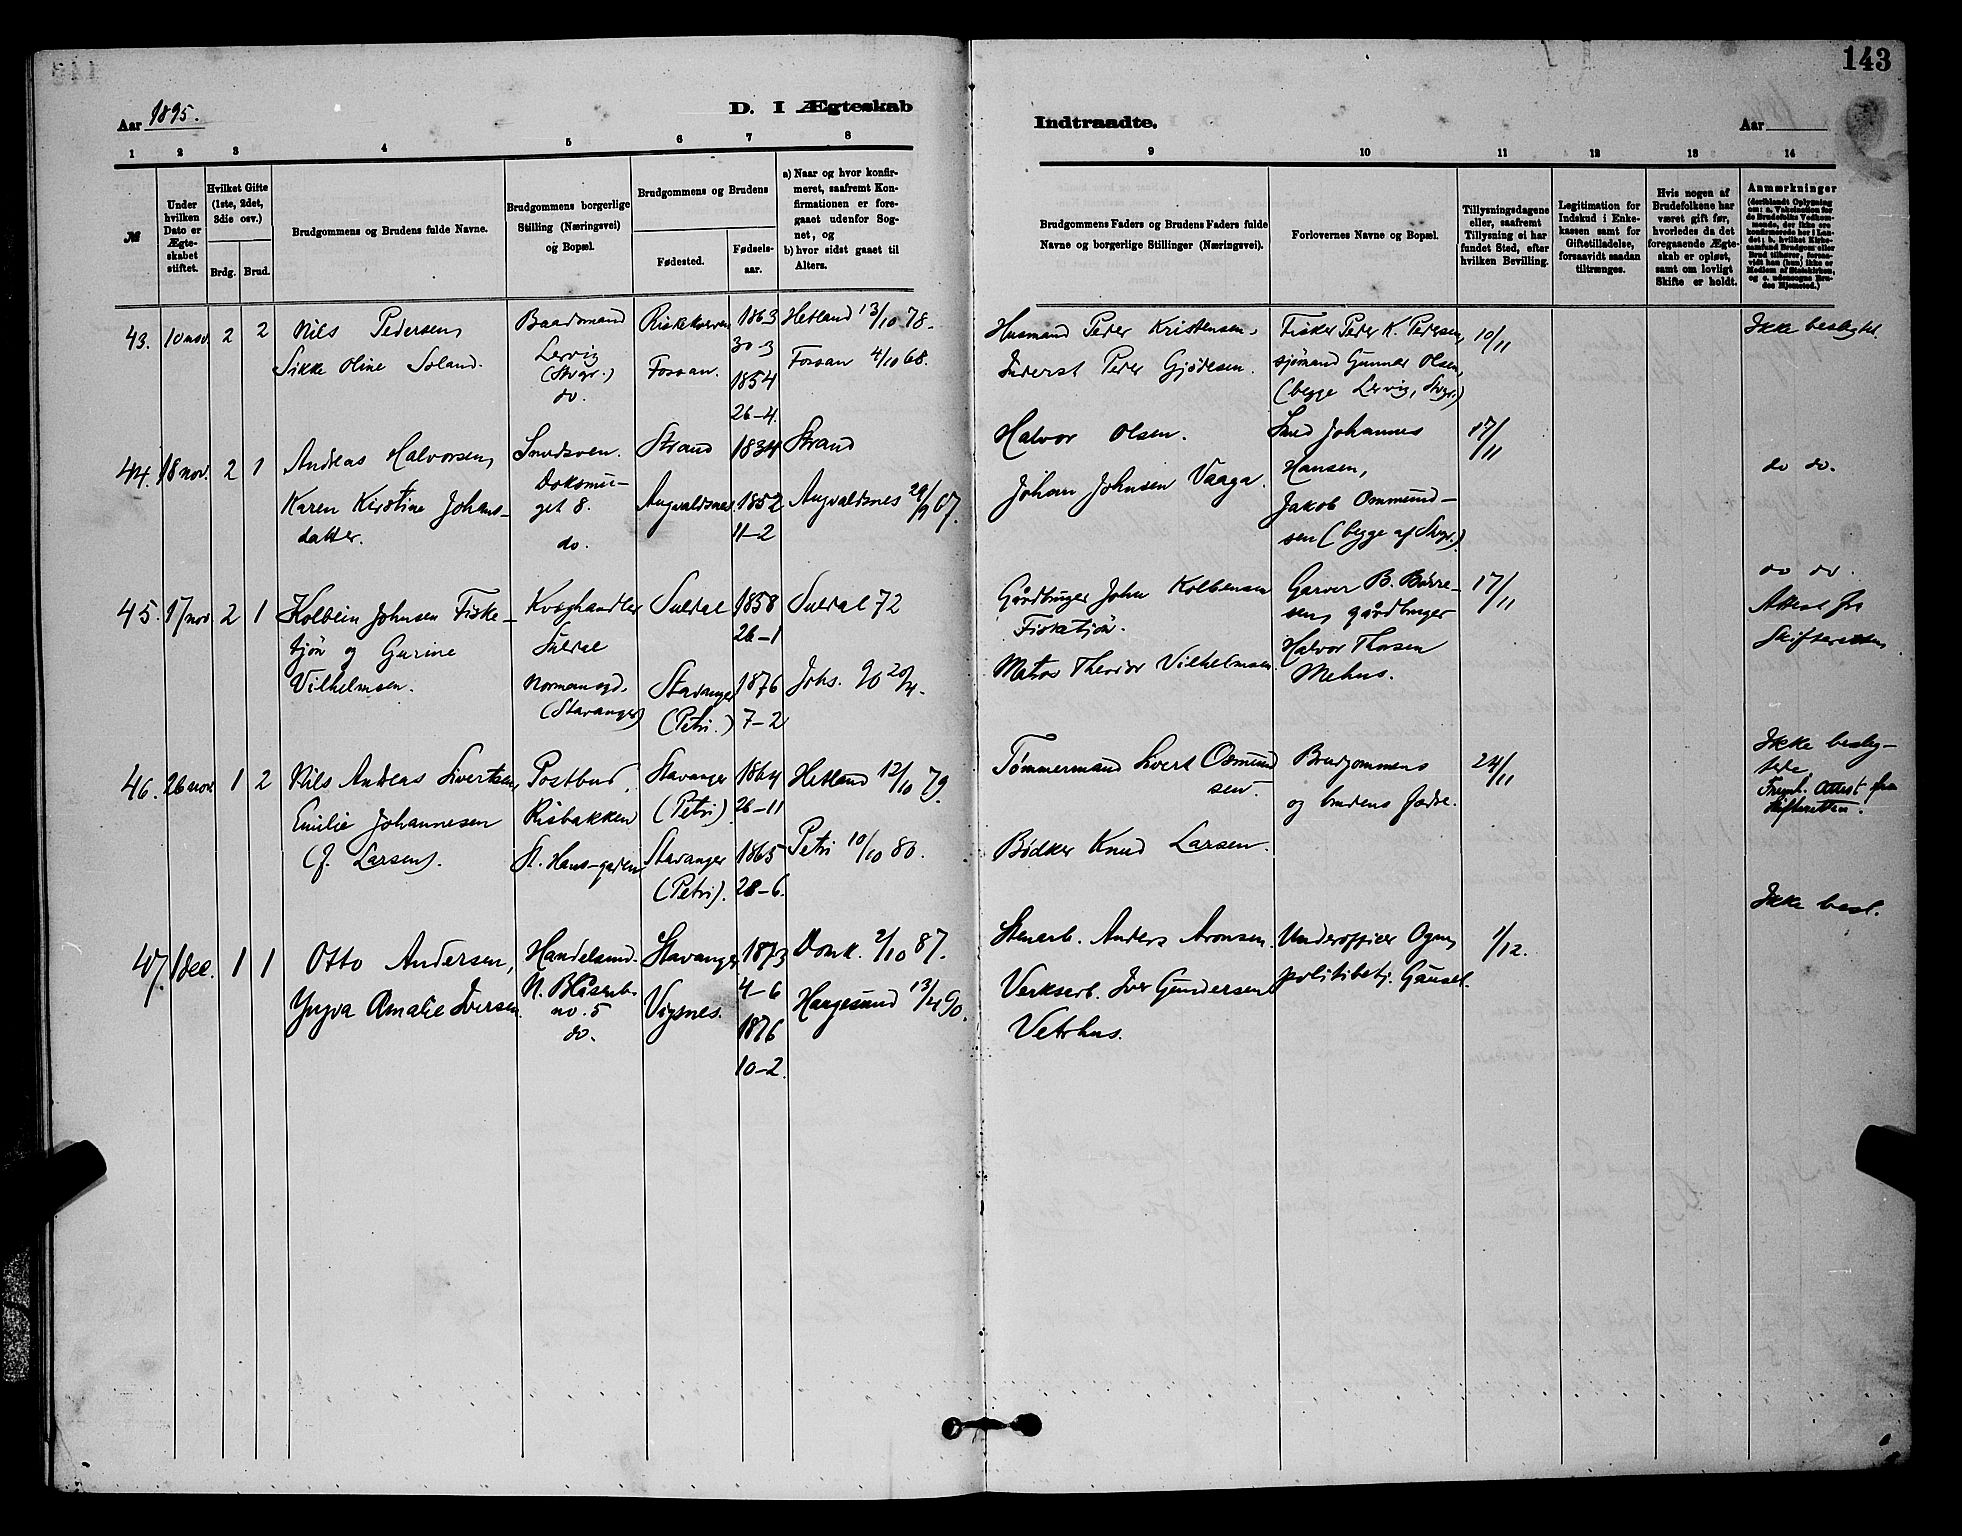 143
Aar 1895.
D. I Ægteskab
Indtraadte.
Aar
1 2 3 4 5 6 7 8 9 10 11 12 13 14
№
Under hvilken Dato er Ægteskabet stiftet.
Hvilket Gifte (1ste, 2det, 3die osv.)
Brdg. Brud.
Brudgommens og Brudens fulde Navne.
Brudgommens borgerlige Stilling (Næringsvei) og Bopæl.
Brudgommens og Brudens
Fødested.
Fødselsaar.
a) Naar og hvor konfirmeret, saafremt Konfirmationen er foregaaet udenfor Sognet, og
b) hvor sidst gaaet til Alters.
Brudgommens Faders og Brudens Faders fulde Navne og borgerlige Stillinger (Næringsvei).
Forlovernes Navne og Bopæl.
Tillysningsdagene eller, saafremt Tillysning ei har fundet Sted, efter hvilken Bevilling.
Legitimation for Indskud i Enkekassen samt for Giftetilladelse, forsaavidt saadan tiltrænges.
Hvis nogen af Brudefolkene har været gift før, hvorledes da det foregaaende Ægteskab er opløst, samt om lovligt Skifte er holdt.
Anmærkninger
43. 10 nov. 2 2
Nils Pedersen,
Sikke Oline Soland.
Baadsmand
Lervig
(Stvgr.)
do.
Fossan.
1863
30-3
1854
26-4
Hetland 13/10 78.
Fossan 4/10 68.
Husmand Peder Kristensen.
Inderst Peder Gjødesen.
Fisker Peder K. Pedersen,
sjømand Gunner Olsen,
(begge Lervig, Stvgr.)
10/11
Ikke beslegtet.
44. 18 nov. 2 1
Andreas Halvorsen,
Karen Kirstine Johans-
datter.
Smedsven.
get 8.
do.
Strand
Augvaldsnes
1834
1852
11-2
Strand
Augvaldsnes 29/9 67.
Halvor Olsen.
Johan Johnsen Vaaga.
Smed Johannes
Hansen,
Jakob Ommund-
sen (begge af Stvgr.)
17/11
do do.
45. 17 nov 2 1
Kolbein Johnsen Fiske-
tjøn og Gurine
Vilhelmsen.
Kvæghandler
Suldal
Normansgd.
(Stavanger)
Suldal
Stavanger
(Petri.)
1858
26-1
1876
7-2
Suldal 72
Johs. 90 20/4.
Gårdbruger John Kolbensen
Fisketjøn.
Matros Theodor Vilhelmsen.
Garver B. Børre-
sen, gårdbruger
Halvor Thorsen
Mehus.
17/11
do do.
Attest fra
Skifteretten
46. 26 nov. 1 2
Nils Andreas Sivertsen,
Emilie Johannesen
(f. Larsen).
Postbud,
Risbakken
St. Hans-gaden
Stavanger
(Petri)
Stavanger
(Petri).
1864
26-11
1865
28-6.
Hetland 12/10 79.
Petri 10/10 80.
Tømmermand Sivert Osmund
sen.
Bødker Knud Larsen.
Brudgommens
og brudens fædre.
24/11
Ikke besleg-
tede.
Freml. Attest fra
Skifteretten.
47. 1 dec. 1 1
Otto Andersen,
Yngva Amalie Iversen.
Handelsmd.
N. Blåsenb.
no. 5
do.
Stavanger
Vigsnes.
1873
4-6
1876
10-2.
Domk. 2/10 87.
Haugesund 13/4 90.
Stenarb. Anders Aronsen.
Verksarb. Iver Gundersen
Vetrhus.
Underofficer Ogne,
politibetj. Gausel.
1/12.
Ikke besl.